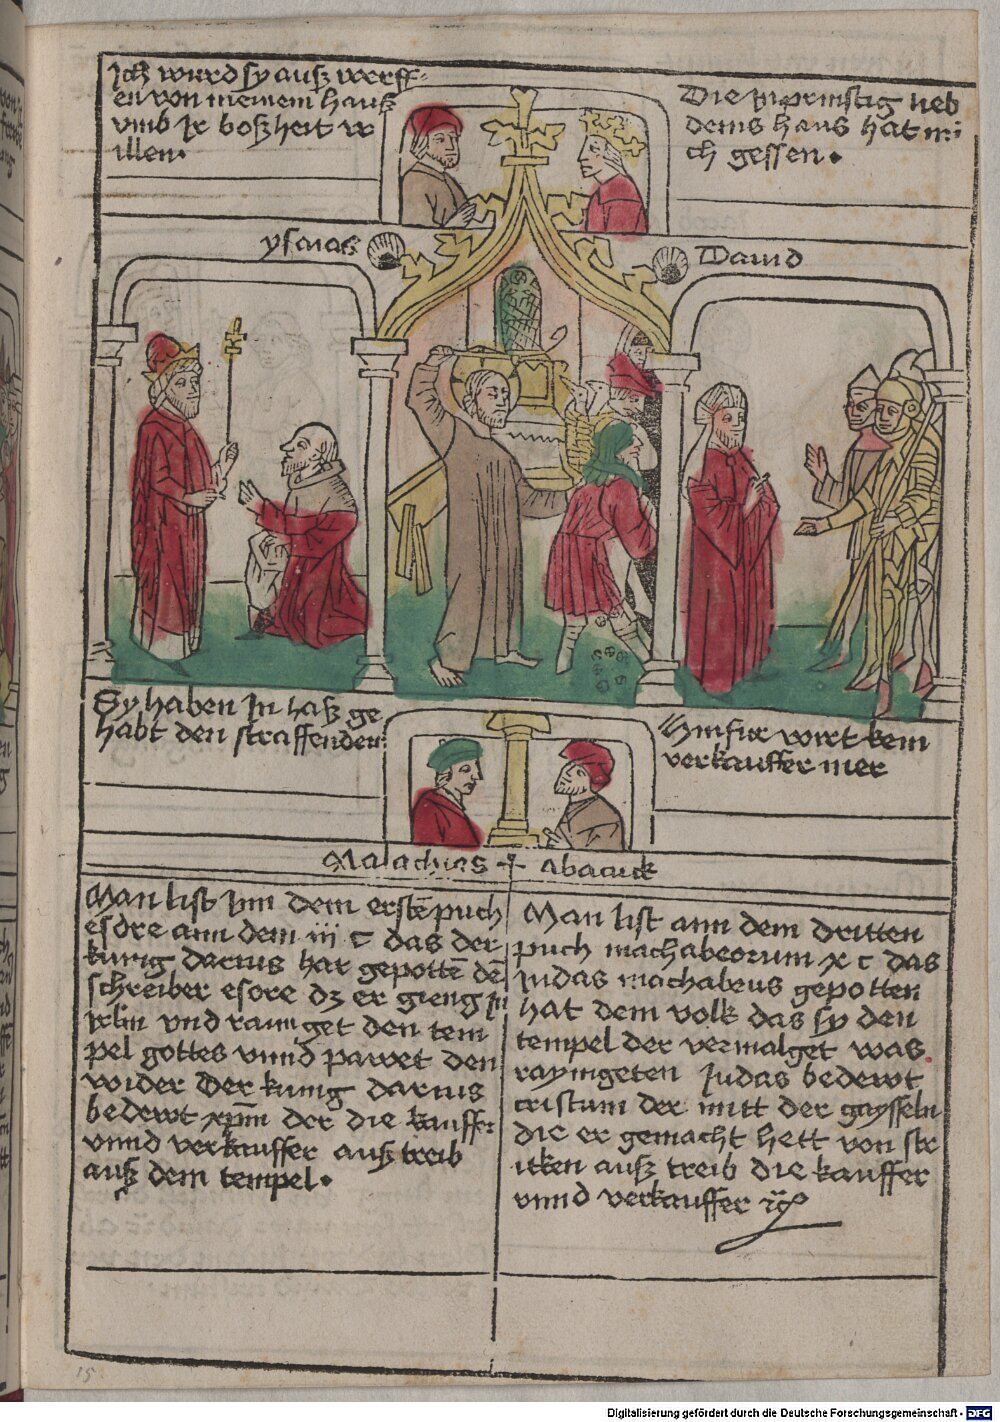 Ich wurd sy ausz werff-
en von meinem hausz
vmb Ir boszheit w
illen.
Die Inprinstig lieb
deins haus hat mi
ch gessen.
ysaias
Dauid
Sy haben In hasz ge
habt den straffenden
Hinfur wirt kein
verkauffer mer
Malachias
Abacuck
Man list Inn dem erstē puch
esdre ann dem iii c das der
kunig darius hat gepottē dē
schreiber esdre dz er gieng In
Irlm vnd rainiget den tem
pel gottes vnnd pawet den
wider Der kunig darius
bedewt xpm der die kauffer
vnnd verkauffer ausz treib
ausz dem tempel.
Man list ann dem dritten
puch machabeorum x c das
Iudas machabeus gepotten
hat dem volk das sy den
tempel der vermalget was
rayingeten Iudas bedewt
cristum der mitt der gaysseln
die er gemacht hett von str
icken ausz treib die kauffer
vnnd verkauffer
15
Digitalisierung gefördert durch die Deutsche Forschungsgemeinschaft - DFG